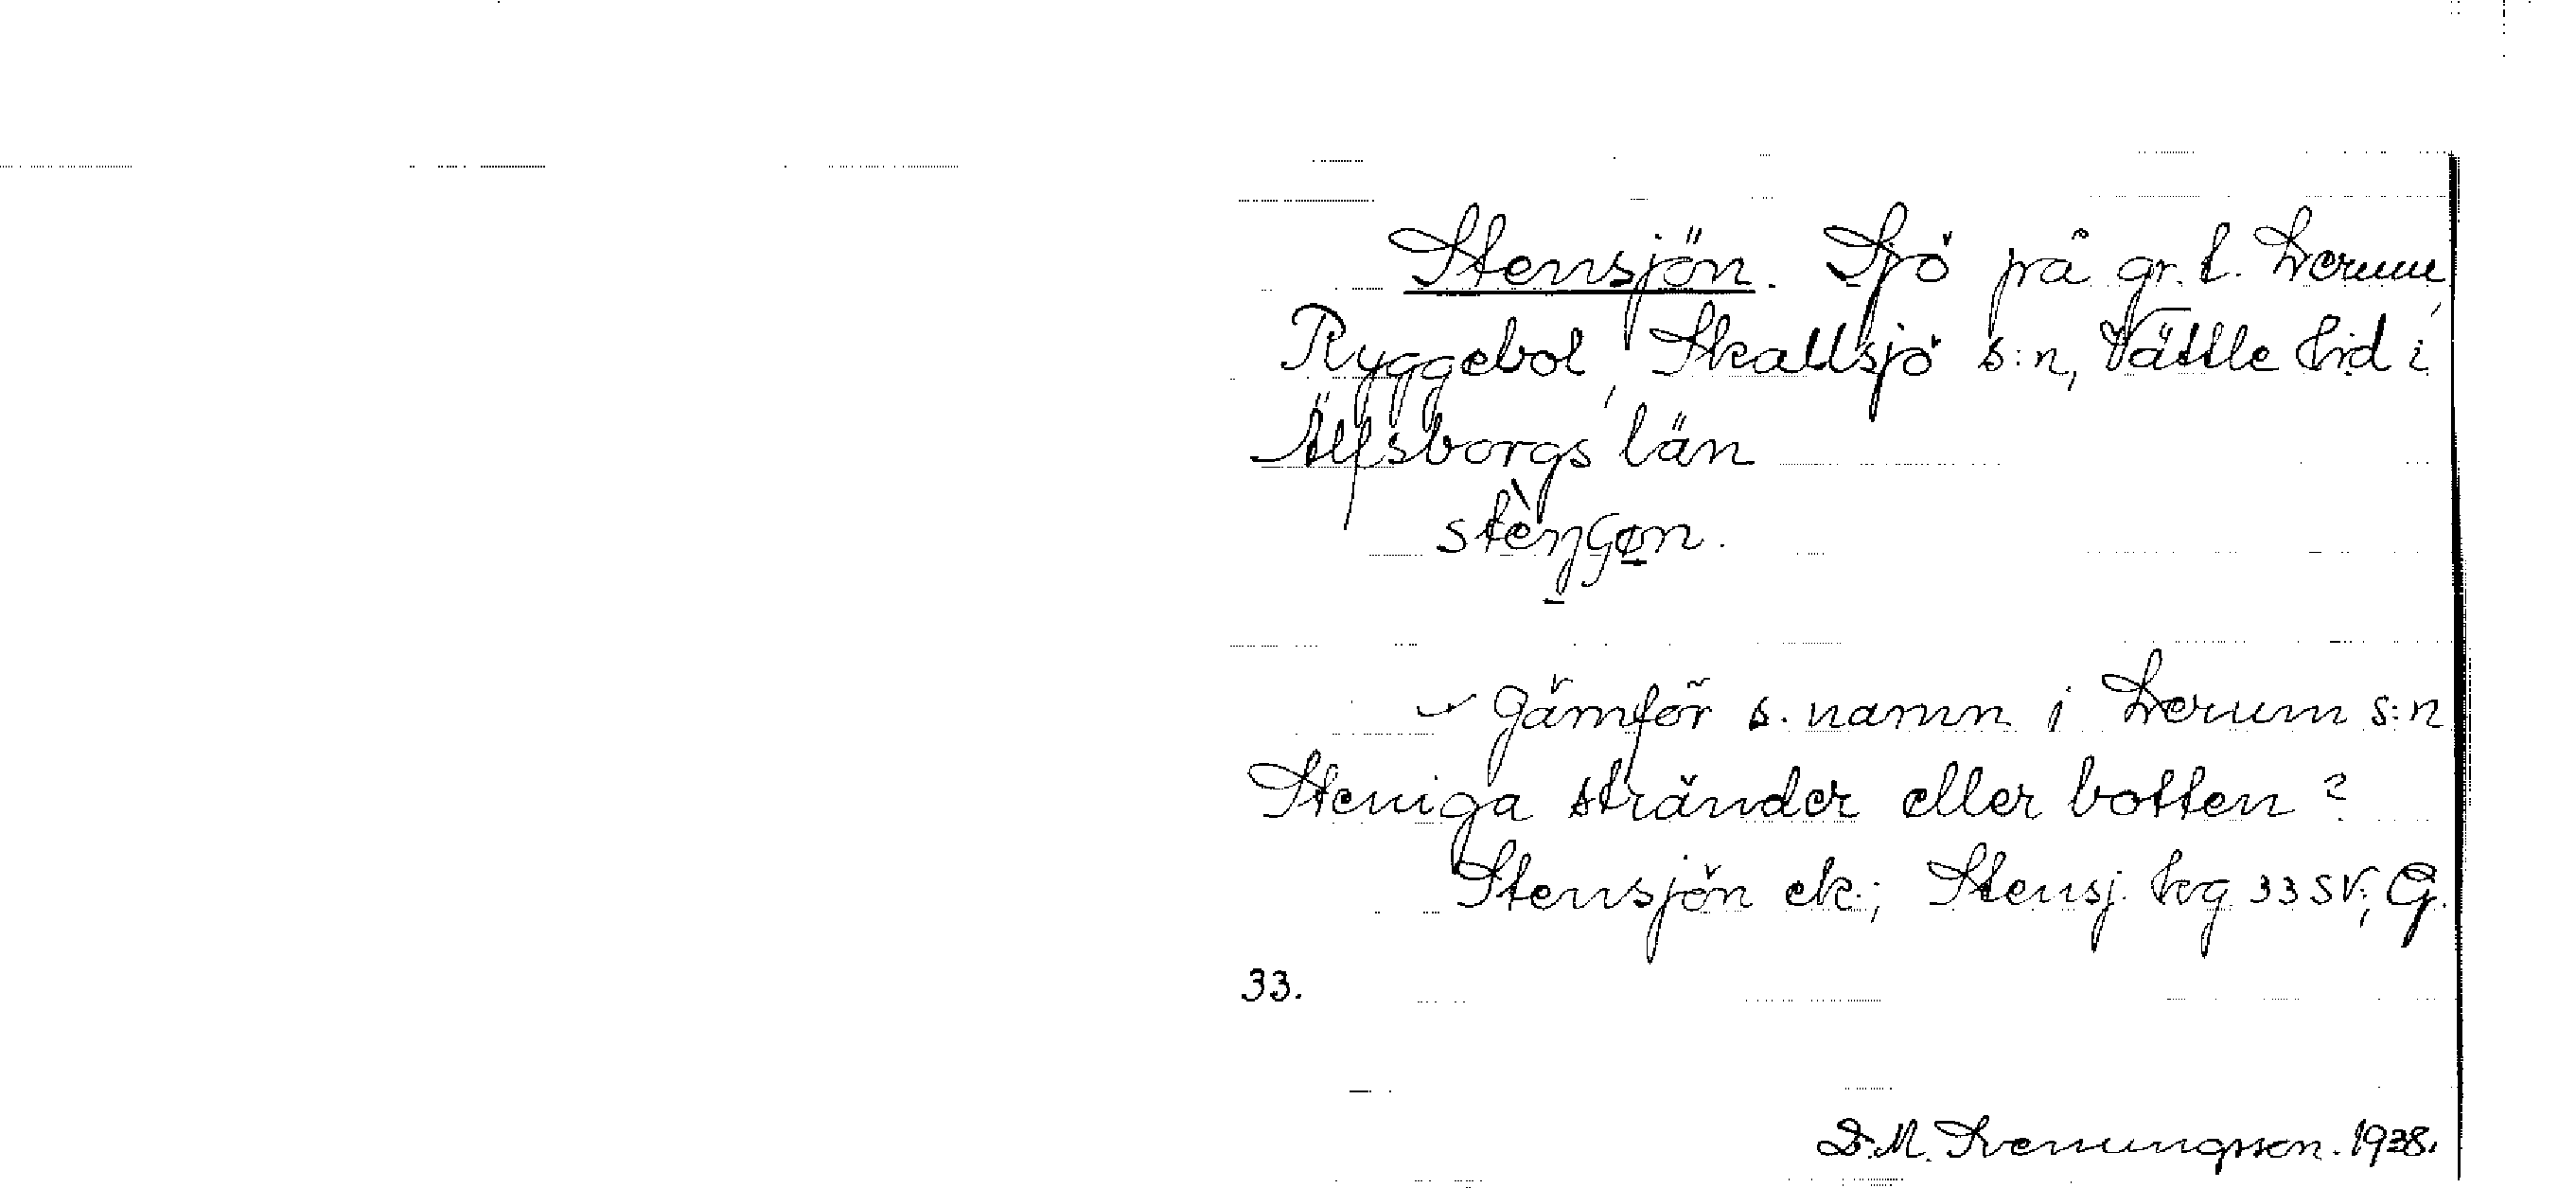 Stensjön. Sjö på gr. t. Lerum,
Ryggebol, Skallsjö s:n, Vättle hrd i
Älfsborgs län
Jämför s. namn i Lerum s:n
Steniga stränder eller botten?
Stensjön ek.; Stensj. hg 33 SV; G.
33.
D. M. Svenungsson. 1938.